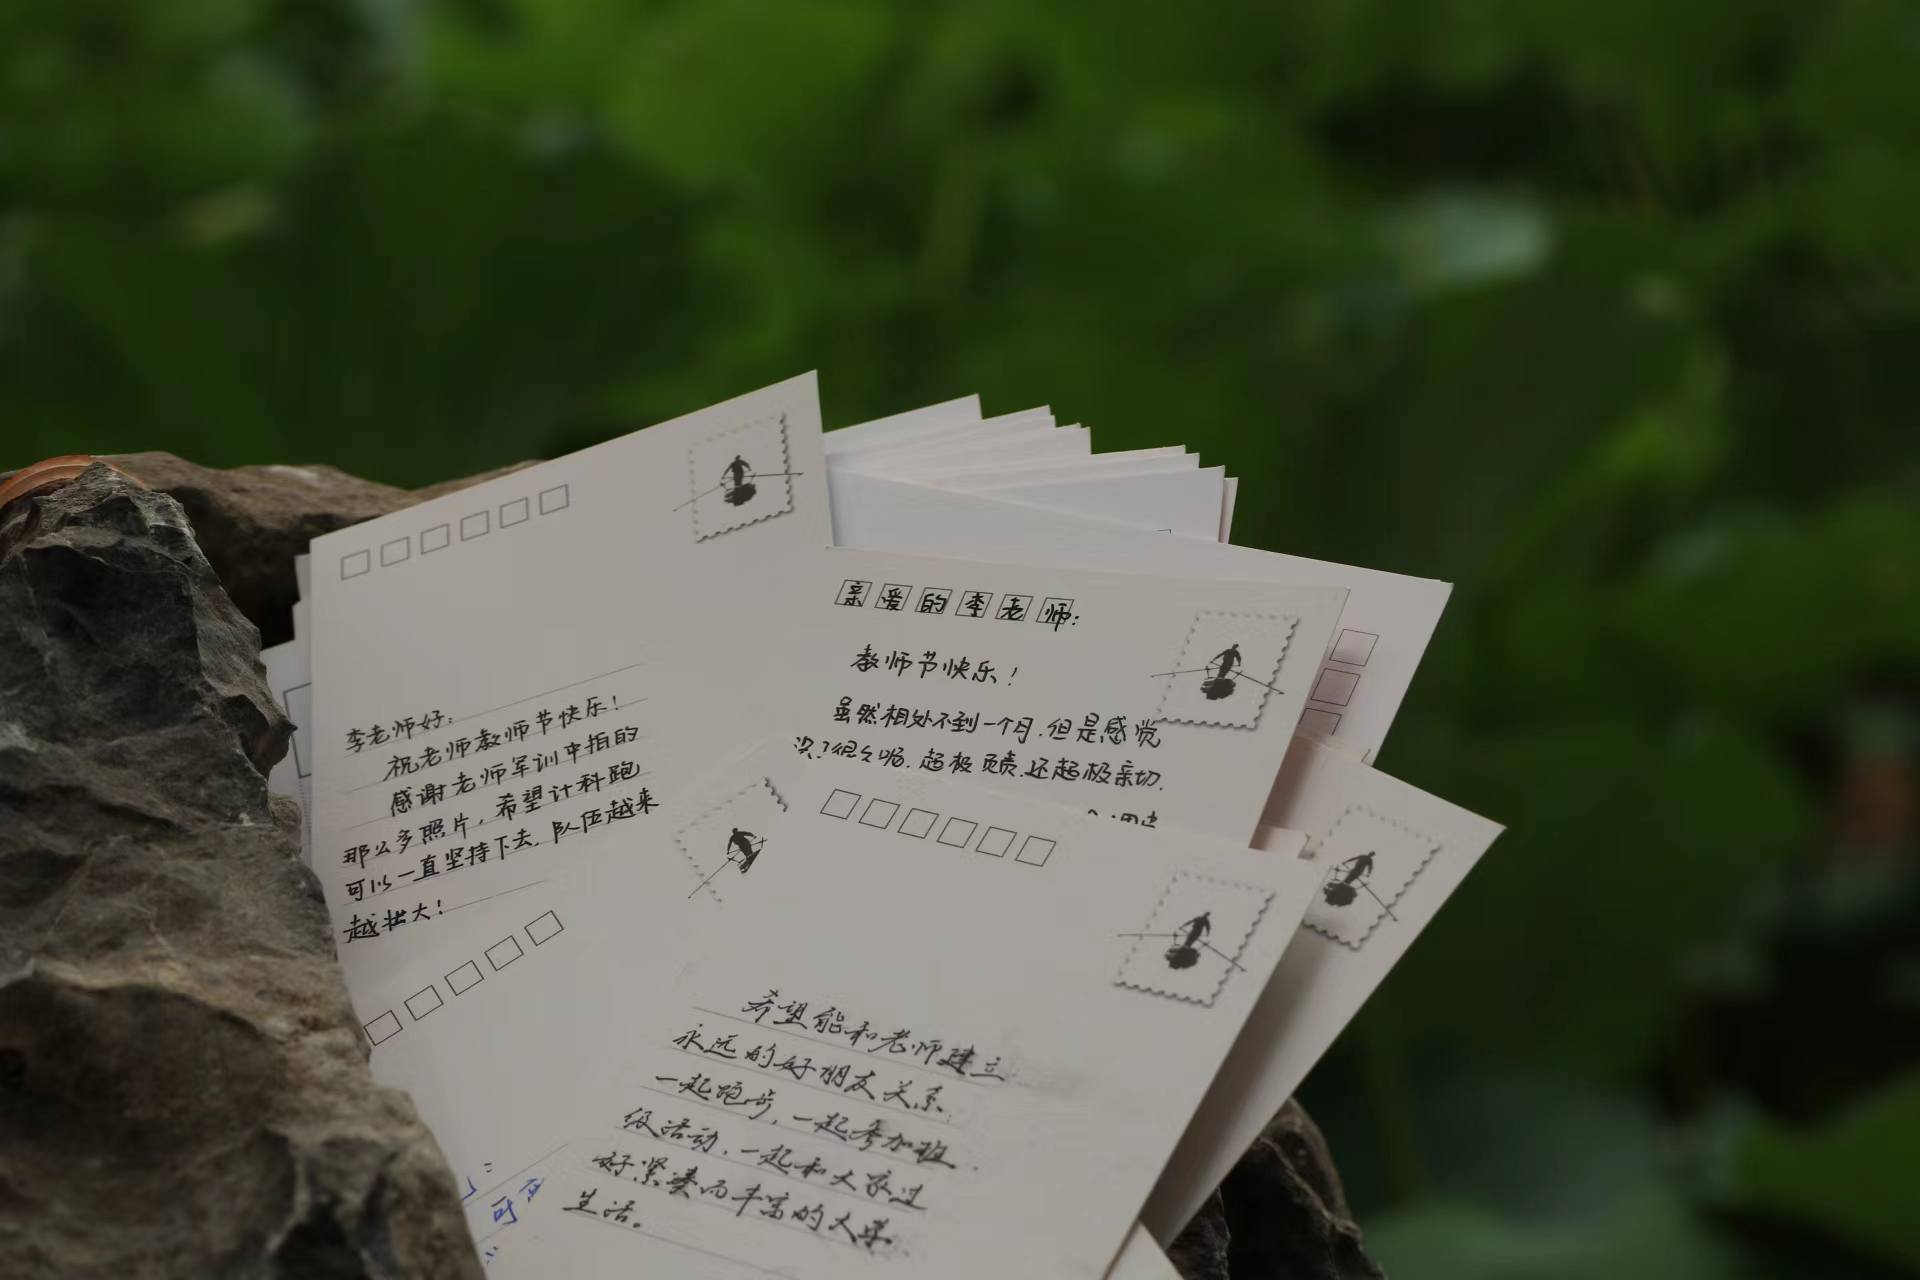 李老师好:
祝老师教师节快乐!
感谢老师军训中拍的
那么多照片,希望计科跑
可以一直坚持下去,队伍越来
越壮大!
亲爱的李老师:
教师节快乐!
虽然相处不到一个月.但是感觉
很久啦.超极负责.还超极亲切.
希望能和老师建立
永远的好朋友关系.
一起跑步,一起参加班
级活动,一起和大家过
好紧凑而丰富的大学
生活。
可